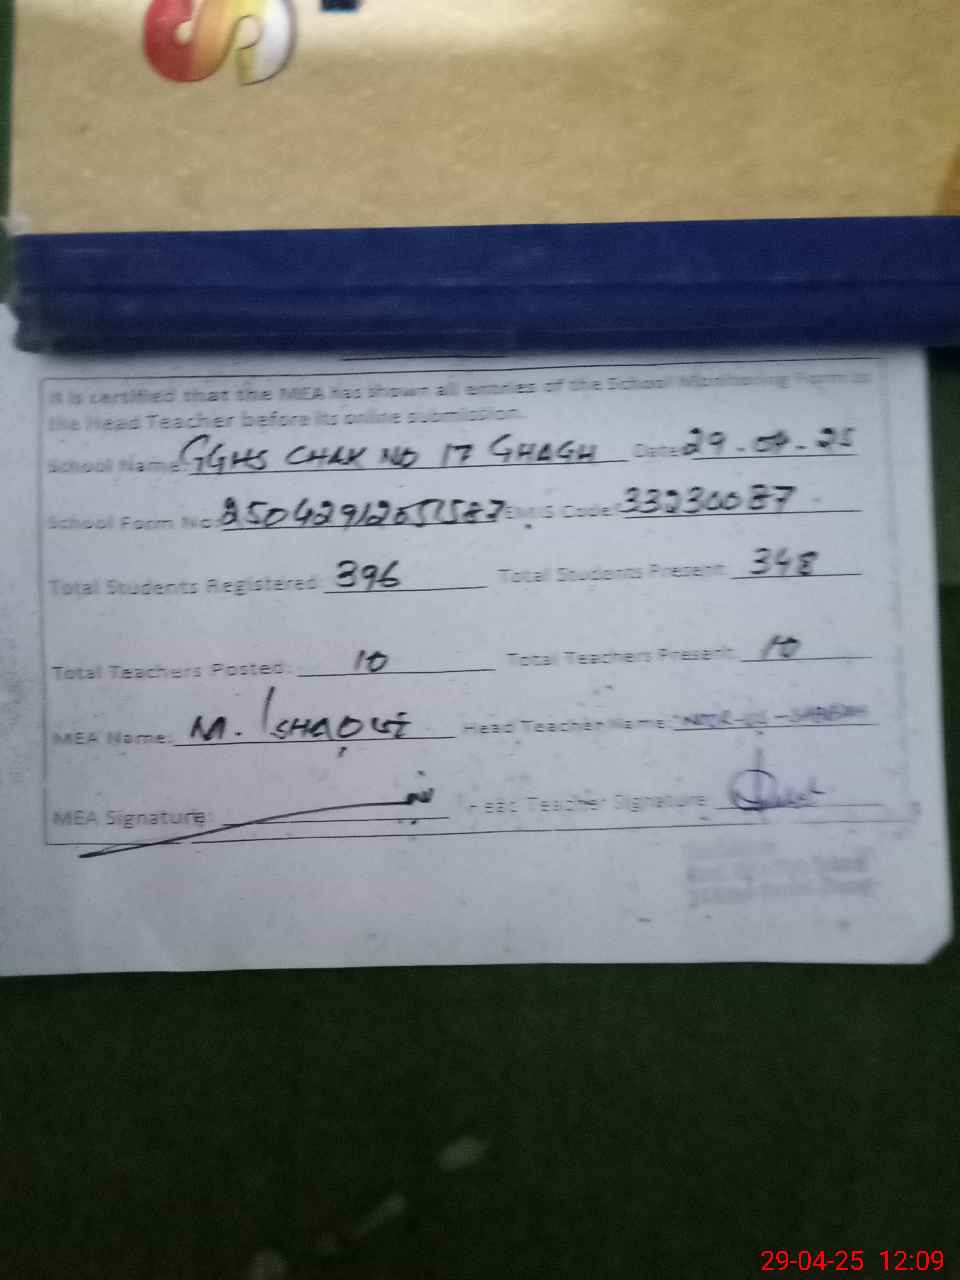 S
It is certified that the MEA has shown all entries of the School Monitoring Form to
the Head Teacher before its online submission.
School Name: GGHS CHAK NO 17 GHAGH Date: 29-04-25
School Form No: EMIS Code: 33230037
Total Students Registered: 396 Total Students Present: 348
Total Teachers Posted: 10 Total Teachers Present: 10
MEA Name: M. Head Teacher Name:
MEA Signature: Head Teacher Signature:
29-04-25 12:09